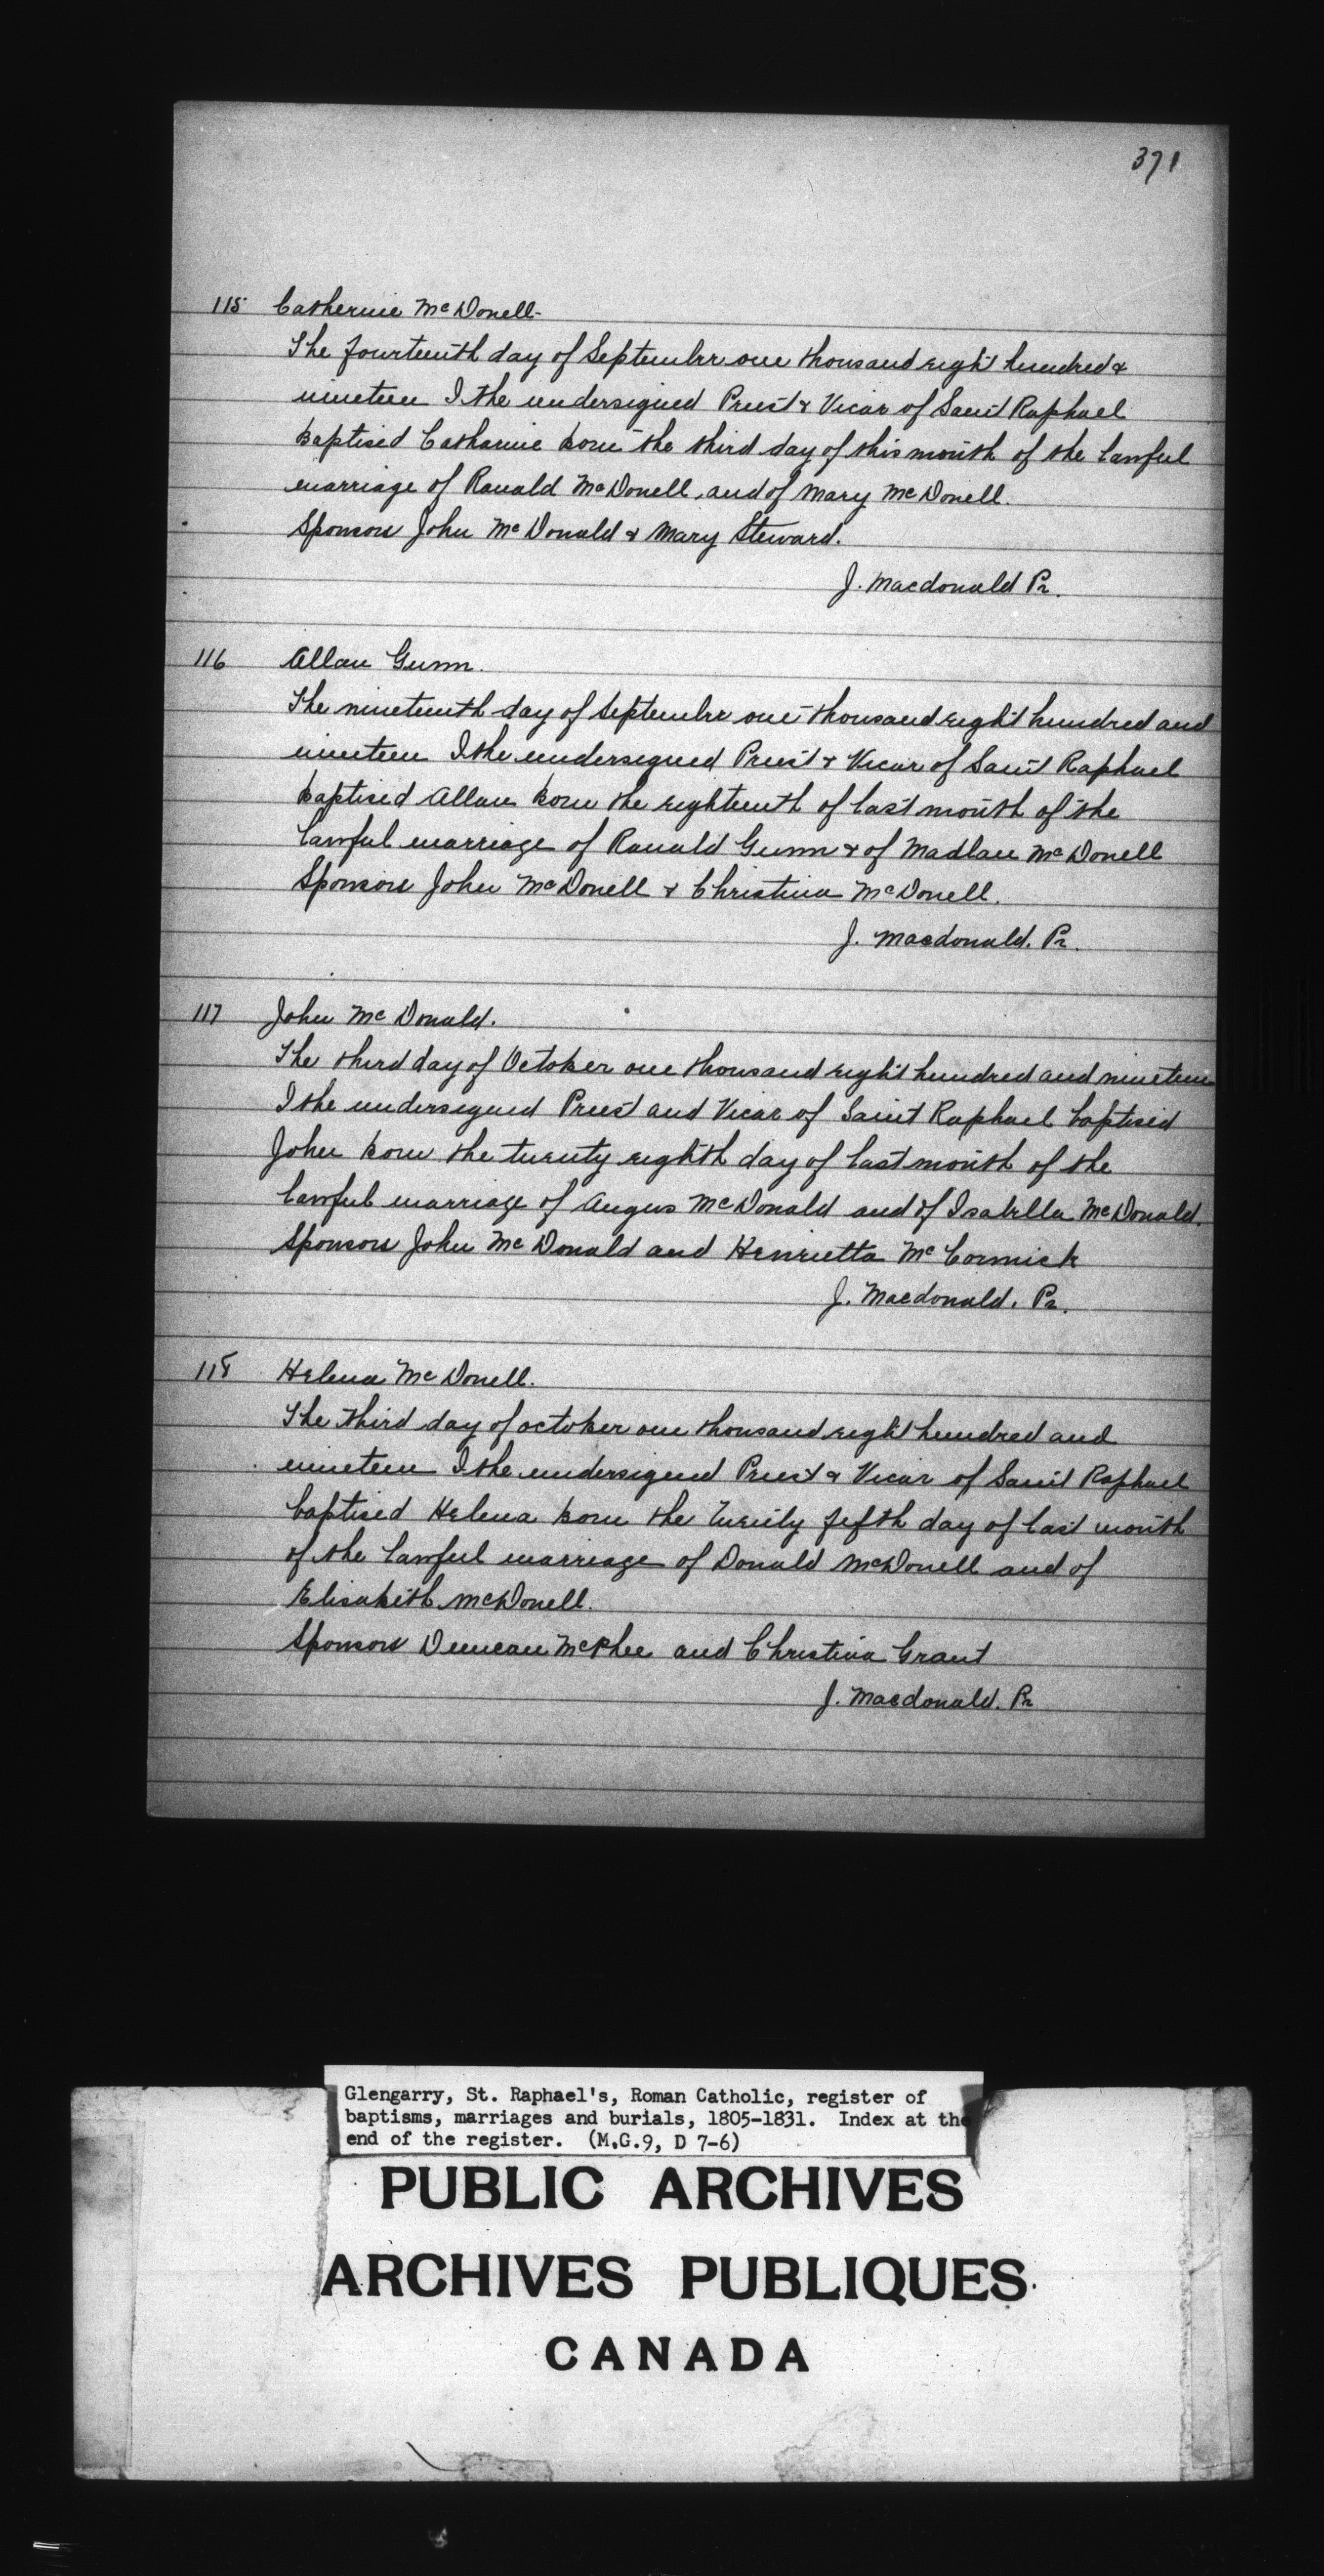 371
115 Catherine McDonell-
The fourteenth day of September one thousand eight hundred &
nineteen I the undersigned Priest & Vicar of Saint Raphael
baptised Catharine born the third day of this month of the lawful
marriage of Ranald McDonell, and of Mary McDonell.
Sponsors John McDonald & Mary Steward.
J. Macdonald Pr.
116 Allan Gunn.
The nineteenth day of September one thousand eight hundred and
nineteen I the undersigned Priest & Vicar of Saint Raphael
baptised Allan born the eighteenth of last month of the
lawful marriage of Ranald Gunn & of Madlan McDonell
Sponsors John McDonell & Christina McDonell.
J. Macdonald. Pr.
117 John McDonald.
The third day of October one thousand eight hundred and nineteen
I the undersigned Priest and Vicar of Saint Raphael baptised
John born the twenty eighth day of last month of the
lawful marriage of Angus McDonald and of Isabella McDonald.
Sponsors John McDonald and Henrietta McCormick
J. Macdonald. Pr.
118 Helena McDonell.
The third day of october one thousand eight hundred and
nineteen I the undersigned Priest & Vicar of Saint Raphael
baptised Helena born the twenty fifth day of last month
of the lawful marriage of Donald McDonell and of
Elisabith McDonell.
Sponsors Duncan McPhee and Christina Grant
J. Macdonald. Pr
Glengarry, St. Raphael's, Roman Catholic, register of
baptisms, marriages and burials, 1805-1831. Index at the
end of the register. (M.G.9, D 7-6)
PUBLIC ARCHIVES
ARCHIVES PUBLIQUES
CANADA